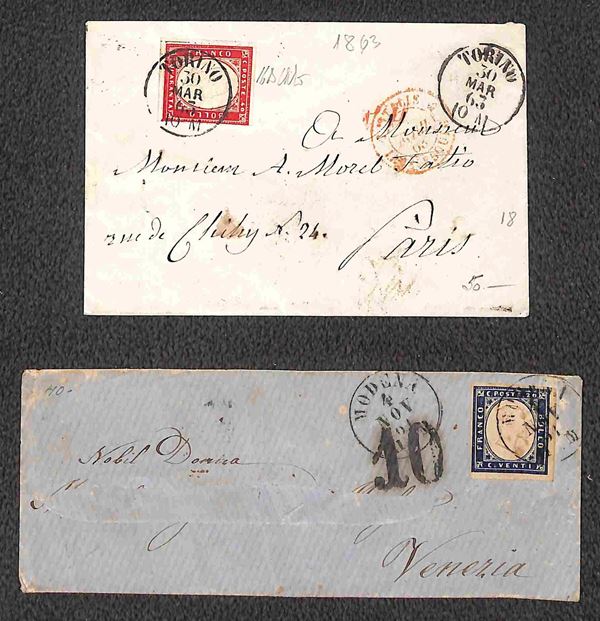 1863
FRANCO
C. POSTE 40
BOLLO
QUARANTA
TORINO
30
MAR
63
10 M
TORINO
30
MAR
63
10 M
A Monsieur
Monsieur A. Morel Fatio
rue de Clichy N. 24.
Paris
18
50.—
40-
MODENA
4
NOV
10
FRANCO
C. POSTE 20
BOLLO
C. VENTI
Nobil Donna
Venezia